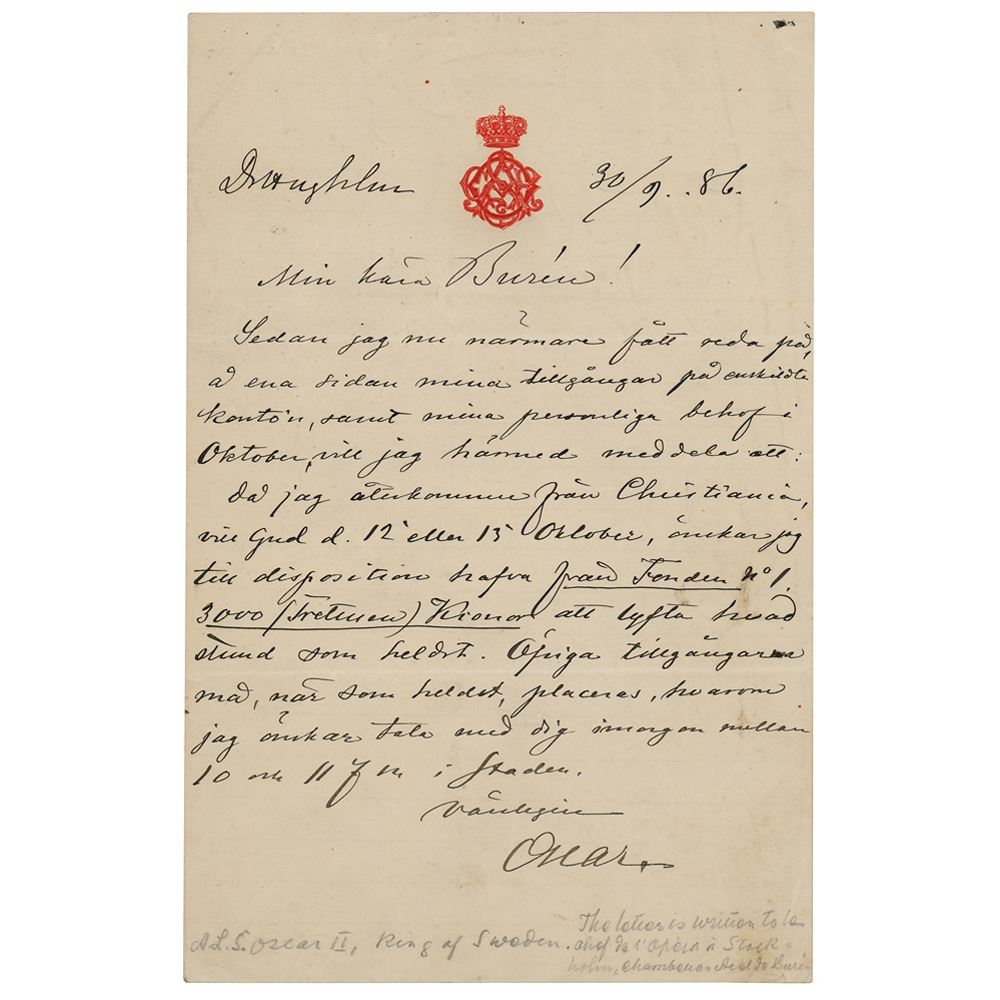 Drottngholm 30/9. 86.
Min kära Burén!
Sedan jag nu närmare fått reda på,
å ena sidan mina tillgångar på enskildta
kontón, samt mina personliga behof i
Oktober, vill jag härmed meddela att:
då jag återkommer från Christiania,
vill Gud d. 12 eller 13 Oktober, önskar jag
till disposition hafva från Fonden No 1.
3000 (Tretusen) Kronor att lyfta hvad
stund som heldst. Öfriga tillgångarna
må, när som heldst, placeras, hvarom
jag önskar tala med dig imorgon mellan
10 och 11 f m i Staden.
Vänligen
Oscar
A.L.S. Oscar II, King of Sweden.
The letter is written to le
chef de l'Opéra à Stock-
holm, Chamberlain de Burén